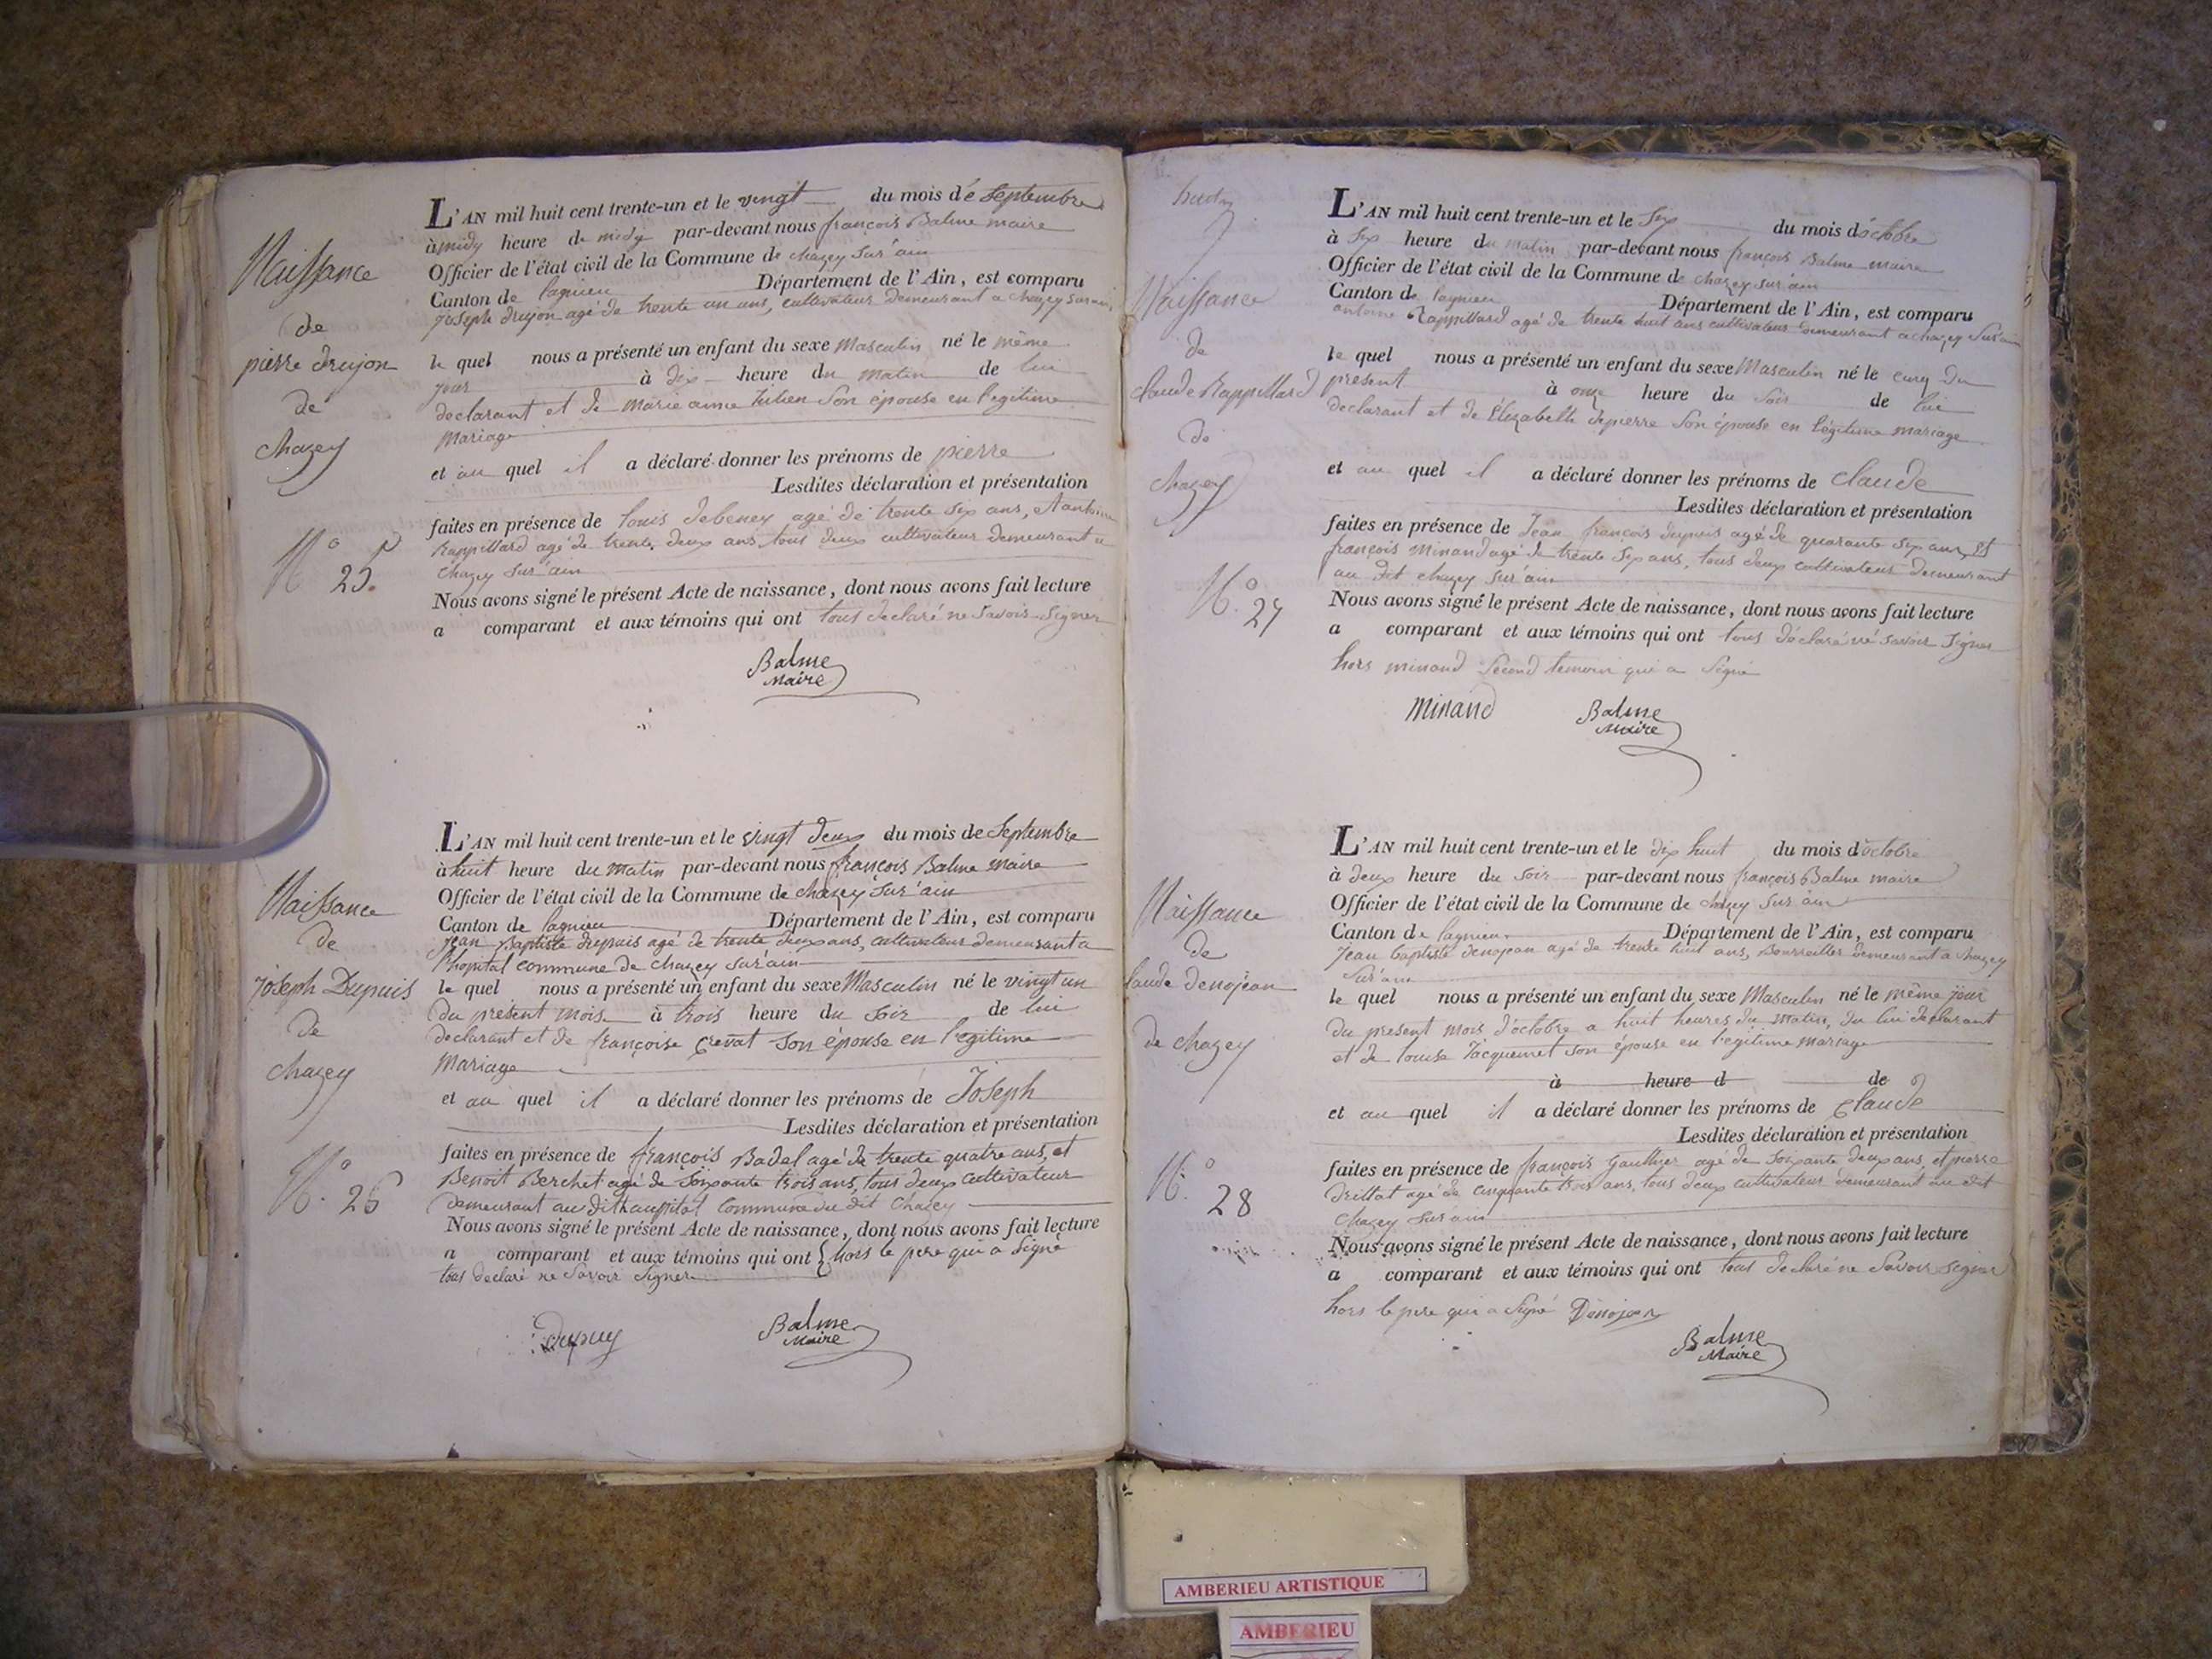 Naissance
de
pierre druyon
de
chazey
N.o 25.
L'AN mil huit cent trente-un et le vingt du mois de septembre
à midy heure de midy par-devant nous françois Balme maire
Officier de l'état civil de la Commune de chazey sur ain
Canton de lagnieu Département de l'Ain, est comparu
joseph druyon agé de trente un ans, cultivateur demeurant a chazey sur ain,
le quel nous a présenté un enfant du sexe Masculin né le même
jour à dix heure du matin de lui
declarant et de marie anne Julien Son épouse en legitime
Mariage
et au quel il a déclaré donner les prénoms de pierre
Lesdites déclaration et présentation
faites en présence de louis debeney agé de trente six ans, et antoine
Rappillard agé de trente deux ans tous deux cultivateur demeurant a
chazey sur ain
Nous avons signé le présent Acte de naissance, dont nous avons fait lecture
a comparant et aux témoins qui ont tous declaré ne Savoir Signer
Balme
Maire
Naissance
de
joseph Dupuis
de
chazey
N.o 26
L'AN mil huit cent trente-un et le vingt deux du mois de Septembre
à huit heure du matin par-devant nous françois Balme maire
Officier de l'état civil de la Commune de chazey sur ain
Canton de lagnieu Département de l'Ain, est comparu
jean Baptiste dupuis agé de trente deux ans, cultivateur demeurant a
l'hopital commune de chazey sur ain
le quel nous a présenté un enfant du sexe Masculin né le vingt un
du present mois à trois heure du soir de lui
declarant et de françoise crevat son épouse en legitime
Mariage
et au quel il a déclaré donner les prénoms de Joseph
Lesdites déclaration et présentation
faites en présence de françois Badel agé de trente quatre ans, et
Benoit Berchet agé de soixante trois ans, tous deux cultivateur
demeurant au dit haupital Commune du dit chazey
Nous avons signé le présent Acte de naissance, dont nous avons fait lecture
a comparant et aux témoins qui ont hors le pere qui a signé
tous declaré ne Savoir Signer
Dupuy
Balme
Maire
Naissance
de
claude Rappillard
de
chazey
N.o 27
L'AN mil huit cent trente-un et le Six du mois d'octobre
à Six heure du matin par-devant nous françois Balme maire
Officier de l'état civil de la Commune de chazey sur ain
Canton de lagnieu Département de l'Ain, est comparu
antoine Rappillard agé de trente huit ans cultivateur demeurant a chazey Sur ain
le quel nous a présenté un enfant du sexe Masculin né le cinq du
present à onze heure du Soir de lui
declarant et de Elizabeth depierre Son épouse en légitime mariage
et au quel il a déclaré donner les prénoms de Claude
Lesdites déclaration et présentation
faites en présence de Jean françois dupuis agé de quarante six ans, et
françois minand agé de trente six ans, tous deux cultivateur demeurant
au dit chazey sur ain
Nous avons signé le présent Acte de naissance, dont nous avons fait lecture
a comparant et aux témoins qui ont tous déclaré né savoir signer
hors minand Second temoin qui a Signé
Minand
Balme
Maire
Naissance
de
laude denojean
de chazey
N.o 28
L'AN mil huit cent trente-un et le dix huit du mois d'octobre
à deux heure du soir par-devant nous françois Balme maire
Officier de l'état civil de la Commune de chazey sur ain
Canton de lagnieu Département de l'Ain, est comparu
Jean baptiste denojean agé de trente huit ans, Bourrellier demeurant a chazey
Sur ain
le quel nous a présenté un enfant du sexe Masculin né le même jour
du present mois d'octobre a huit heures du matin, du lui declarant
et de louise Jacquemet son épouse en legitime mariage
à heure d de
et au quel il a déclaré donner les prénoms de Claude
Lesdites déclaration et présentation
faites en présence de françois Gauthier agé de soixante deux ans, et pierre
Drillat agé de cinquante trois ans, tous deux cultivateur demeurant au dit
chazey sur ain
Nous avons signé le présent Acte de naissance, dont nous avons fait lecture
a comparant et aux témoins qui ont tous declaré ne Savoir signer
hors le pere qui a Signé Denojean
Balme
Maire
AMBERIEU ARTISTIQUE
AMBERIEU